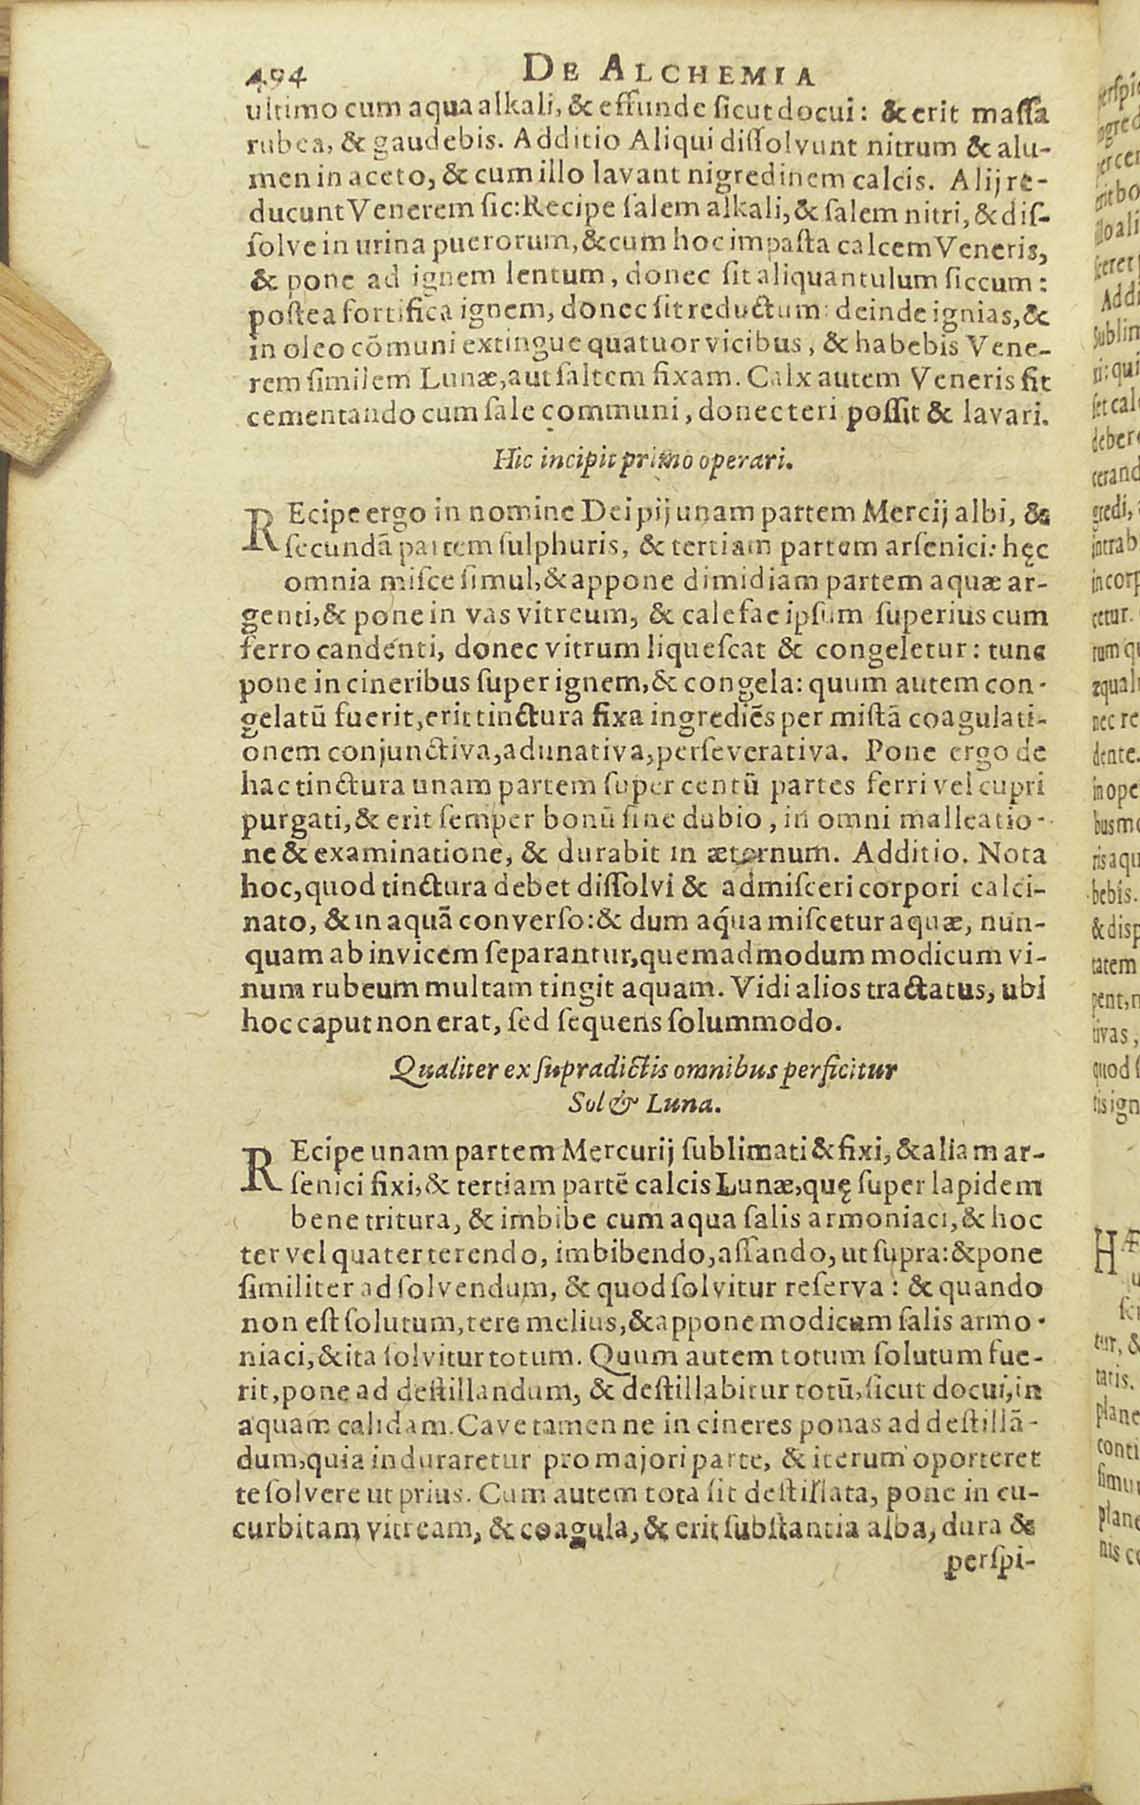 494 DE ALCHEMIA
ultimo cum aqua alkali, & effunde sicut docui: & erit massa
rubea, & gaudebis. Additio Aliqui dissolvunt nitrum & alu-
men in aceto, & cum illo lavant nigredinem calcis. Alij re-
ducunt Venerem sic: Recipe salem alkali, & salem nitri, & dis-
solve in urina puerorum, & cum hoc impasta calcem Veneris,
& pone ad ignem lentum, donec sit aliquantulum siccum:
postea fortifica ignem, donec sit reductum: deinde ignias, &
in oleo cōmuni extingue quatuor vicibus, & habebis Vene-
rem similem Lunæ, aut saltem fixam. Calx autem Veneris fit
cementando cum sale communi, donec teri possit & lavari.
Hic incipit primo operari.
REcipe ergo in nomine Dei pij unam partem Mercij albi, &
secundā partem sulphuris, & tertiam partem arsenici: hęc
omnia misce simul, & appone dimidiam partem aquæ ar-
genti, & pone in vas vitreum, & calefac ipsum superius cum
ferro candenti, donec vitrum liquescat & congeletur: tunc
pone in cineribus super ignem, & congela: quum autem con-
gelatū fuerit, erit tinctura fixa ingrediēs per mistā coagulati-
onem conjunctiva, adunativa, perseverativa. Pone ergo de
hac tinctura unam partem super centū partes ferri vel cupri
purgati, & erit semper bonū sine dubio, in omni malleatio-
ne & examinatione, & durabit in æternum. Additio. Nota
hoc, quod tinctura debet dissolvi & admisceri corpori calci-
nato, & in aquā converso: & dum aqua miscetur aquæ, nun-
quam ab invicem separantur, quemadmodum modicum vi-
num rubeum multam tingit aquam. Vidi alios tractatus, ubi
hoc caput non erat, sed sequens solummodo.
Qualiter ex supradictis omnibus perficitur
Sol & Luna.
REcipe unam partem Mercurij sublimati & fixi, & aliam ar-
senici fixi, & tertiam partē calcis Lunæ, quę super lapidem
bene tritura, & imbibe cum aqua salis armoniaci, & hoc
ter vel quater terendo, imbibendo, assando, ut supra: & pone
similiter ad solvendum, & quod solvitur reserva: & quando
non est solutum, tere melius, & appone modicum salis armo-
niaci, & ita solvitur totum. Quum autem totum solutum fue-
rit, pone ad destillandum, & destillabitur totū, sicut docui, in
aquam calidam. Cave tamen ne in cineres ponas ad destillā-
dum, quia induraretur pro majori parte, & iterum oporteret
te solvere ut prius. Cum autem tota sit destillata, pone in cu-
curbitam vitream, & coagula, & erit substantia alba, dura &
perspi-